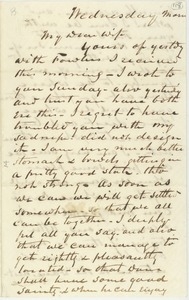 Wednesday Morn
My dear Wife
Yours of yestdy
with Fowlers I received
this morning - I wrote to
you Sunday - also yesterday
and hint you have both
ere this - I regret to have
troubled you with my
sadness I did not design
it - I am very much better
stomach & bowels getting in
a pretty good state tho
not strong As soon as
we can we will get settled
somewhere so that we all
can be together - I deeply
feel all you say, and also
that we can manage to
get eightly & pleasantly
located - so that
shall have some good
when he can enjoy